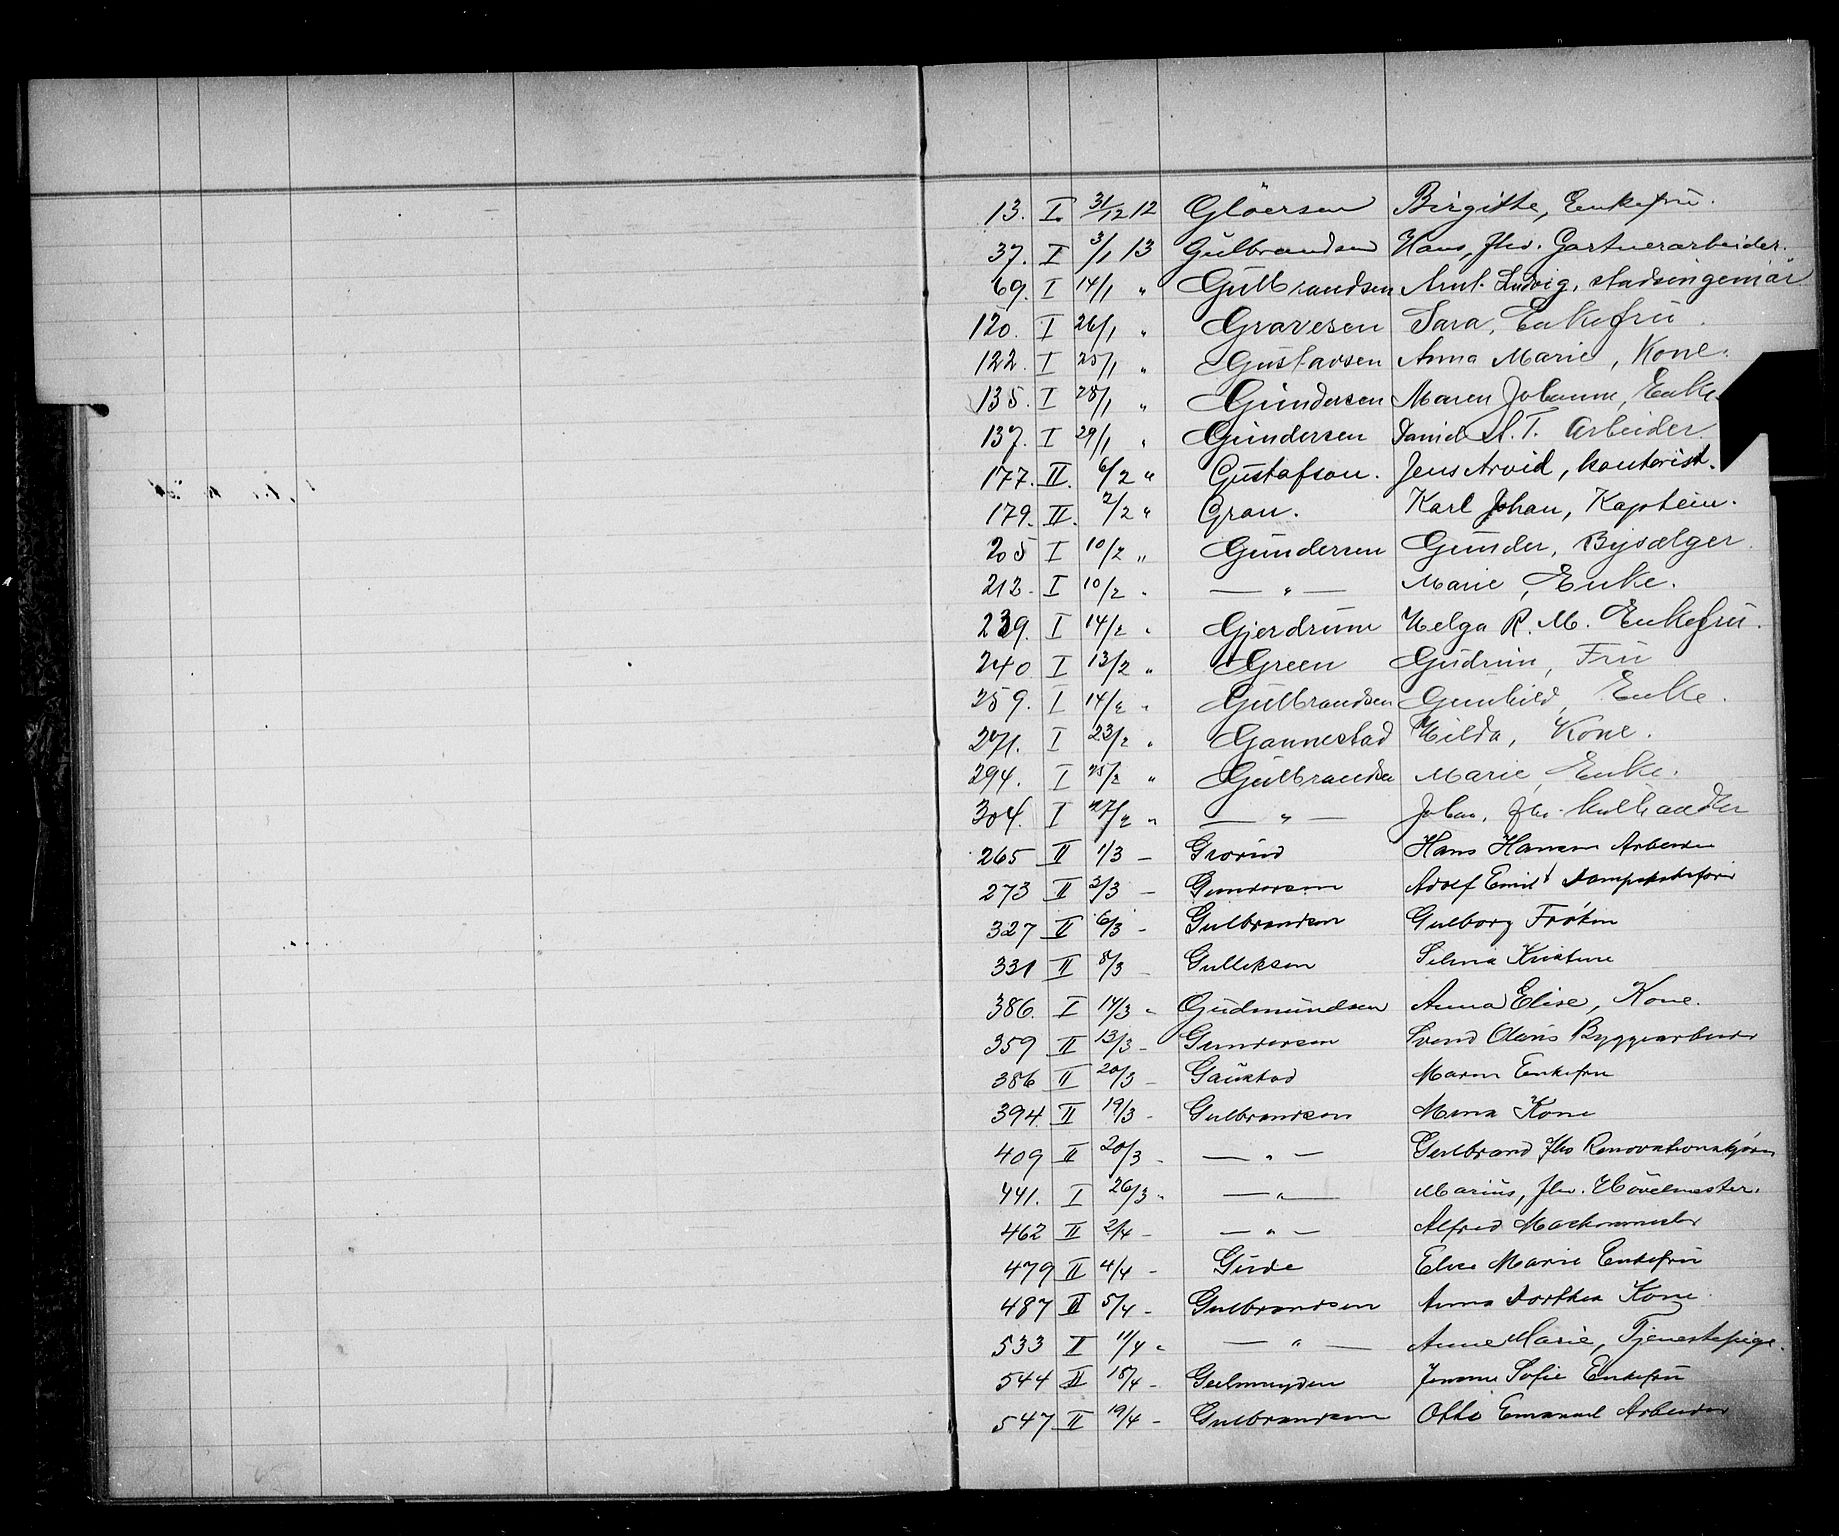 13. I. 31/12 12 Glöersen Birgitte, Enkefru.
37. I 3/1 13 Gulbrandsen Hans, fhv. Gartnerarbeider.
69. I 14/1 " Gulbrandsen Arnt Ludvig, stadsingeniør
120. I 26/1 " Gravesen Sara, Enkefru.
122. I 25/1 " Gustavsen Anna Marie, Kone.
135. I 28/1 " Gundersen Maren Johanne, Enke
137. I 29/1 " Gundersen Daniel A. T. Arbeider.
177. II. 6/2 " Gustafson. Jens Arvid, kontorist.
179. II. 7/2 " Gran. Karl Johan, Kaptein.
205 I 10/2 " Gundersen Gunder, Bysælger.
212. I 10/2 " — " — Marie, Enke.
239. I 14/2 " Gjerdrum Helga R. M. Enkefru.
240 I 13/2 " Green Gudrun, Fru
259. I 14/2 " Gulbrandsen Gunhild, Enke.
271. I 23/2 " Gannestad Hilda, Kone.
294. I 25/2 " Gulbrandsen Marie, Enke.
304. I 27/2 " — " — Johan, fhv. kulhandler
265 II 1/3 — Grorud Hans Hansen Arbeider
273 II 3/3 — Gundersen Adolf Emil Dampskibsfører
327 II 6/3 - Gulbrandsen Gulborg Frøken
331 II 8/3 - Gulliksen Selma Kristine
386. I 14/3 " Gudmundsen Anna Elise, Kone.
359 II 13/3 - Gundersen Svend Olaus Byggearbeider
386 II 20/3 - Gaustad Maren Enkefru
394. II 19/3 - Gulbrandsen Mina Kone
409 II 20/3 - — " — Gulbrand fhv Renovationskjører
441. I 26/3 " — " — Marius, fhv. Høvelmester.
462 II 2/4 - — " — Alfred Maskinmester
479 II 4/4 - Gude Elise Marie Enkefru
487 II 5/4 - Gulbrandsen Anna Dorthea Kone
533 I 11/4 " — " — Anne Marie, Tjenestepige.
544 II 18/4 - Geelmuyden Jensine Sofie Enkefru
547 II 19/4 - Gulbrandsen Otto Emanuel Arbeider